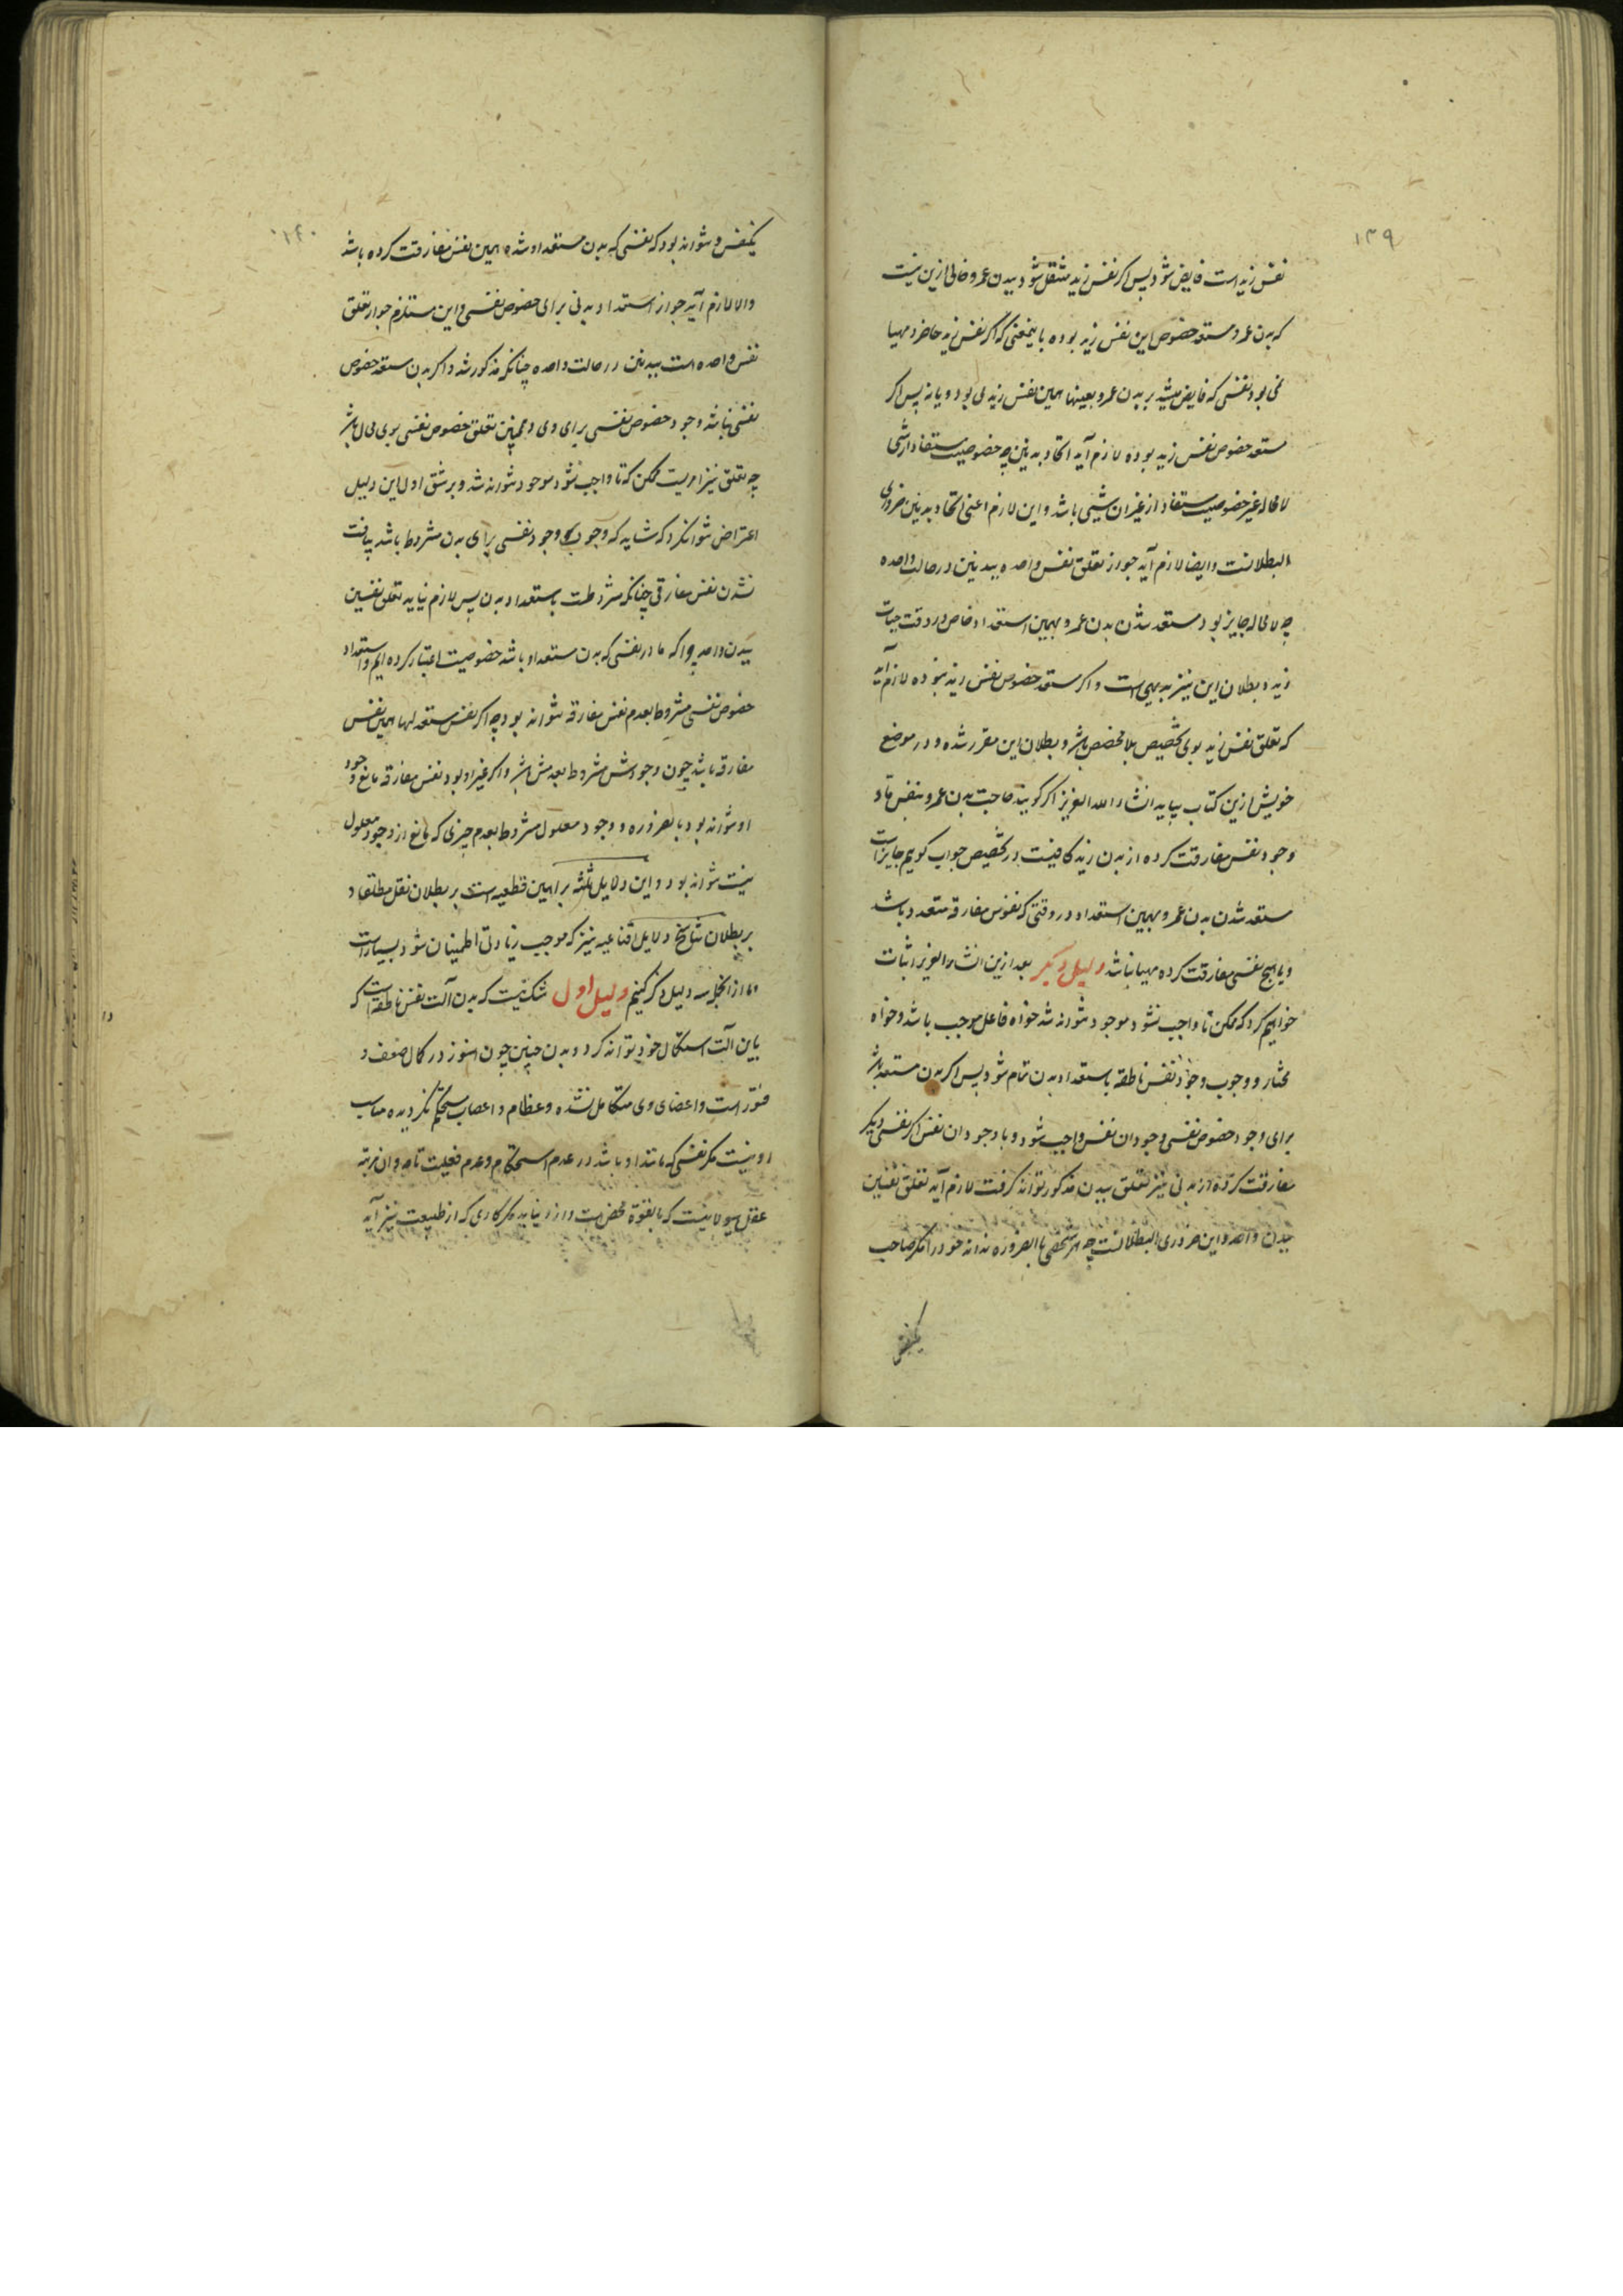 ۱۳۹
نفس زید است فایض شود پس اگر نفس زید منتقل شود ببدن عمرو خالی ازین نیست
که بدن عمرو مستعد خصوص این نفس زید بوده باینمعنی که اگر نفس زید حاضر و مهیا
نمی بود نفسی که فایض میشد بر بدن عمرو بعینها همین نفس زید می بود و یا نه پس اگر
مستعد خصوص نفس زید بوده لازم آید اتحاد بدنین چه خصوصیت مستفاد از شی
لا محاله غیر خصوصیت مستفاد از غیر آن شیئی باشد و این لازم اعنی اتحاد بدنین ضروری
البطلانست و ایضا لازم آید جواز تعلق نفس واحده ببدنین در حالت واحده
چه لا محاله جایز بود مستعد شدن بدن عمرو بهمین استعداد خاص در وقت حیات
زید و بطلان این نیز بدیهی است و اگر مستعد خصوص نفس زید نبوده لازم آید
که تعلق نفس زید بوی تخصیص بلا مخصص باشد و بطلان این مقرر شده و در موضع
خویش ازین کتاب بیاید انشاء الله العزیز اگر گویند صاحبت بدن عمرو بنفس ما و
وجود نفس مفارقت کرده از بدن زید کافیست در تخصیص جواب گویم جایز است
مستعد شدن بدن عمرو بهمین استعداد در وقتی که نفوس مفارقه متعدد باشد
و یا هیچ نفسی مفارقت کرده مهیا نباشد دلیل دیگر بعد ازین انشاء العزیز اثبات
خواهیم کرد که ممکن تا واجب نشود موجود نتواند شد خواه فاعل موجب باشد و خواه
مختار و وجوب وجود نفس ناطقه باستعداد بدن تمام شود پس اگر بدن مستعد باشد
برای وجود خصوص نفسی وجود ان نفس واجب شود و با وجود ان نفس اگر نفسی دیگر
مفارقت کرده از بدنی نیز تعلق ببدن مذکور تواند گرفت لازم آید تعلق نفسین
ببدن واحد و این ضروری البطلانست چه هر شخصی بالضروره نداند خود را مگر صاحب
یکنفس
۱۴۰
یکنفس و نتواند بود که نفسی که بدن مستعد او شده همین نفس مفارقت کرده باشد
والا لازم آید جواز استعداد بدنی برای خصوص نفسی و این مستلزم جواز تعلق
نفس واحده است ببدنین در حالت واحده چنانکه مذکور شد و اگر بدن مستعد خصوص
نفسی نباشد وجود خصوص نفسی برای وی و همچنین تعلق خصوص نفسی بوی محال باشد
چه تعلق نیز امریست ممکن که تا واجب نشود موجود نتواند شد و بر شق اول این دلیل
اعتراض نتوانکرد که شاید که وجوب وجود نفسی برای بدن مشروط باشد بیافت
نشدن نفس مفارقی چنانکه مشروطست باستعداد بدن پس لازم نیاید تعلق نفسین
ببدن واحد چرا که ما در نفسی که بدن مستعد او باشد خصوصیت اعتبار کرده ایم و استعداد
خصوص نفسی مشروط بعدم نفس مفارقه نتواند بود چه اگر نفس مستعد لها همین نفس
مفارقه باشد چون وجودش مشروط بعدمش باشد و اگر غیر او بود نفس مفارقه مانع وجود
او نتواند بود بالضروره و وجود معلول مشروط بعدم چیزی که مانع از وجود معلول
نیست نتواند بود و این دلایل ثلثه براهین قطعیه است بر بطلان نقل مطلقا و
بر بطلان تناسخ دلایل اقناعیه نیز که موجب زیادتی اطمینان شود بسیار است
و ما از انجمله سه دلیل ذکر کنیم دلیل اول شک نیست که بدن آلت نفس ناطقه است که
باین آلت استکمال خود تواند کرد و بدن جنین چون هنوز در کمال ضعف و
فتور است و اعضای وی متکامل نشده و عظام و اعصاب مستحکم نگردیده مناسب
او نیست مگر نفسی که مانند او باشد در عدم استحکام و عدم فعلیت تامه و ان مرتبه
عقل هیولانیست که بالقوه محض است و از و نیاید مگر کاری که از طبیعت نیز آید